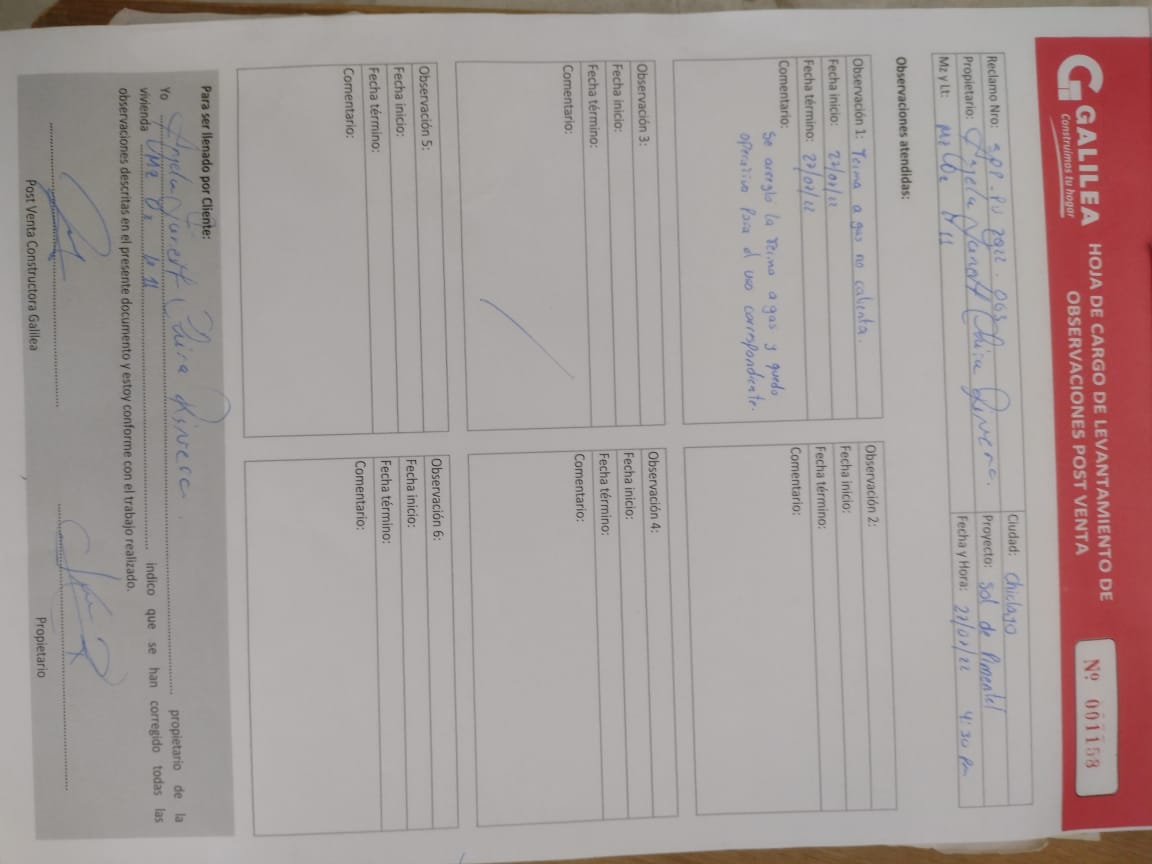 GALILEA
Construimos tu hogar
HOJA DE CARGO DE LEVANTAMIENTO DE
OBSERVACIONES POST VENTA
Nº 001158
Reclamo Nro: SPP-PU 2022-063
Ciudad: Chiclayo
Propietario: Angela Rivera.
Proyecto: Sol de Pimentel
Mz y Lt: Mz O2 lt 11
Fecha y Hora: 27/07/22 4:30 pm
Observaciones atendidas:
Observación 1: Terma a gas no calienta.
Fecha inicio: 27/07/22
Fecha término: 27/07/22
Comentario:
Se arreglo la terma a gas y quedo
operativo para el uso correspondiente.
Observación 2:
Fecha inicio:
Fecha término:
Comentario:
Observación 3:
Fecha inicio:
Fecha término:
Comentario:
Observación 4:
Fecha inicio:
Fecha término:
Comentario:
Observación 5:
Fecha inicio:
Fecha término:
Comentario:
Observación 6:
Fecha inicio:
Fecha término:
Comentario:
Para ser llenado por Cliente:
Yo Angela Rivera. propietario de la
vivienda Mz O2 lt 11 indico que se han corregido todas las
observaciones descritas en el presente documento y estoy conforme con el trabajo realizado.
Post Venta Constructora Galilea
Propietario